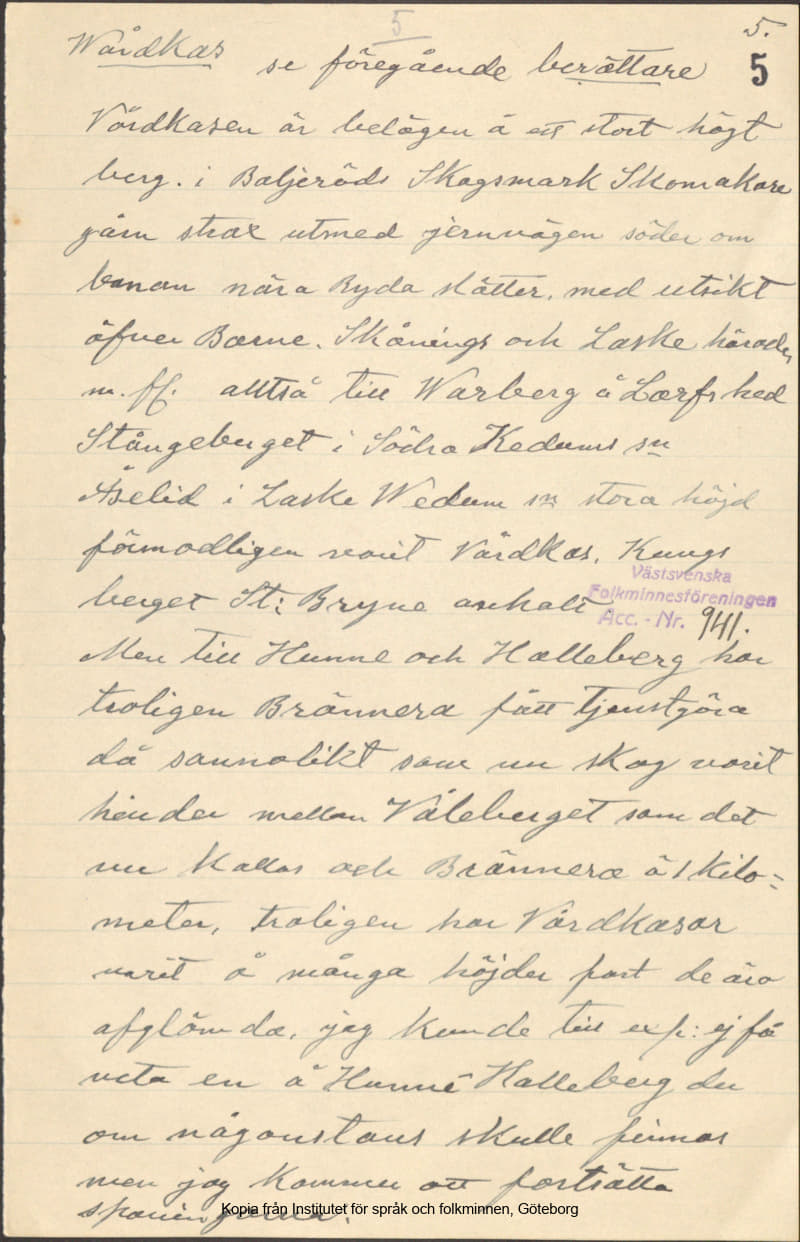 5
5.
Wårdkas se föregående berättare
5
Vårdkasen är belägen å ett stort högt
berg. i Baljeröds Skogsmark Skomakare
gårn strax utmed jernvägen söder om
banan nära Ryda slätter, med utsikt
öfver Barne. Skånings och Laske härader
m. fl. alltså till Warberg å Larfs hed
Stångeberget i Södra Kedums sn
Åselid i Laske Wedum sn stora höjd
förmodligen varit Vårdkas, Kungs
berget St: Bryne anhalt
Västsvenska
Folkminnesföreningen
Acc. - Nr. 941.
Men till Hunne och Halleberg har
troligen Brännera fått tjenstgöra
då sannolikt som nu skog varit
hinder mellan Våleberget som det
nu kallas och Brännera å 1 kilo=
meter, troligen har Vårdkasar
varit å många höjder fast de äro
afglömda, jag kunde till exp: ej få
veta en å Hunne Halleberg der
om någonstans skulle finnas
men jag kommer att fortsätta
spaningarna.
Kopia från Institutet för språk och folkminnen, Göteborg